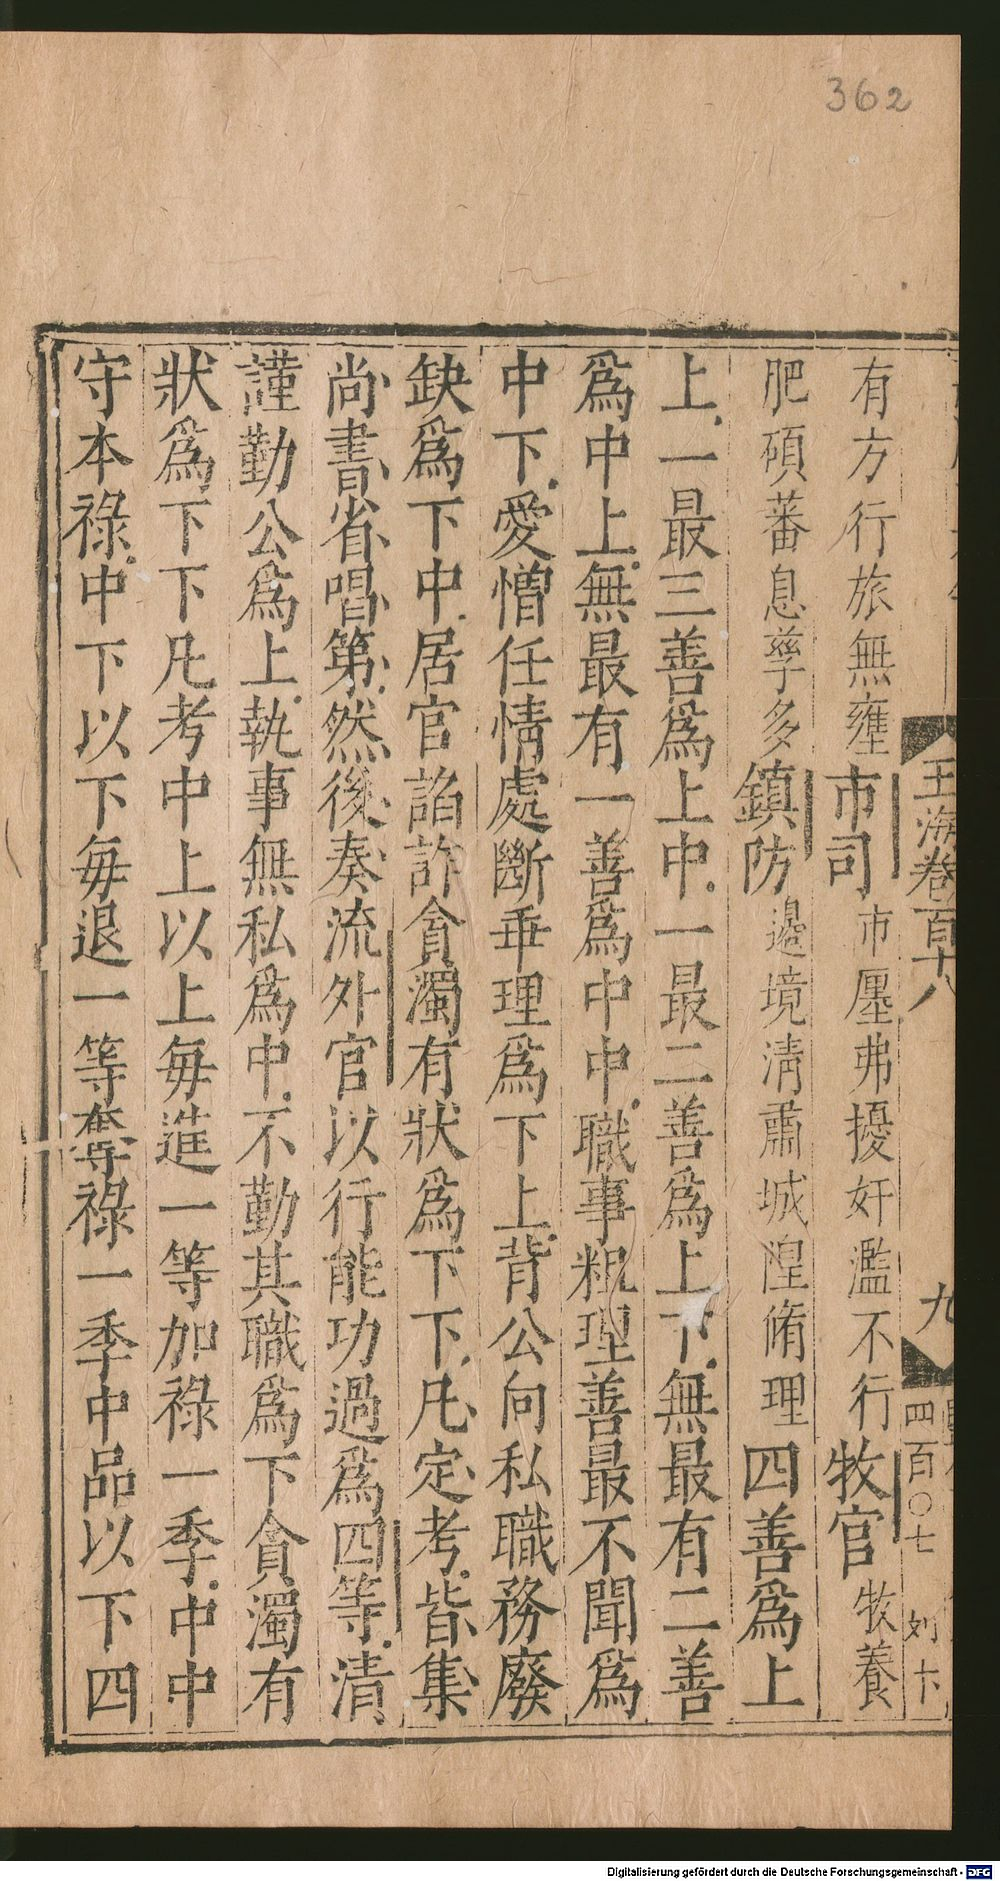 362
玉海卷百十八
九
四百〇七
刘卞
有方行旅無壅市司市廛弗擾奸濫不行牧官牧養
肥碩蕃息孳多鎮防邊境淸肅城隍脩理四善爲上
上一最三善爲上中一最二善爲上下無最有二善
爲中上無最有一善爲中中職事粗理善最不聞爲
中下愛憎任情處斷乖理爲下上背公向私職務廢
缺爲下中居官諂詐貪濁有狀爲下下凡定考皆集
尚書省唱第然後奏流外官以行能功過爲四等清
謹勤公爲上執事無私爲中不勤其職爲下貪濁有
狀爲下下凡考中上以上每進一等加祿一季中中
守本祿中下以下每退一等奪祿一季中品以下四
Digitalisierung gefördert durch die Deutsche Forschungsgemeinschaft - DFG